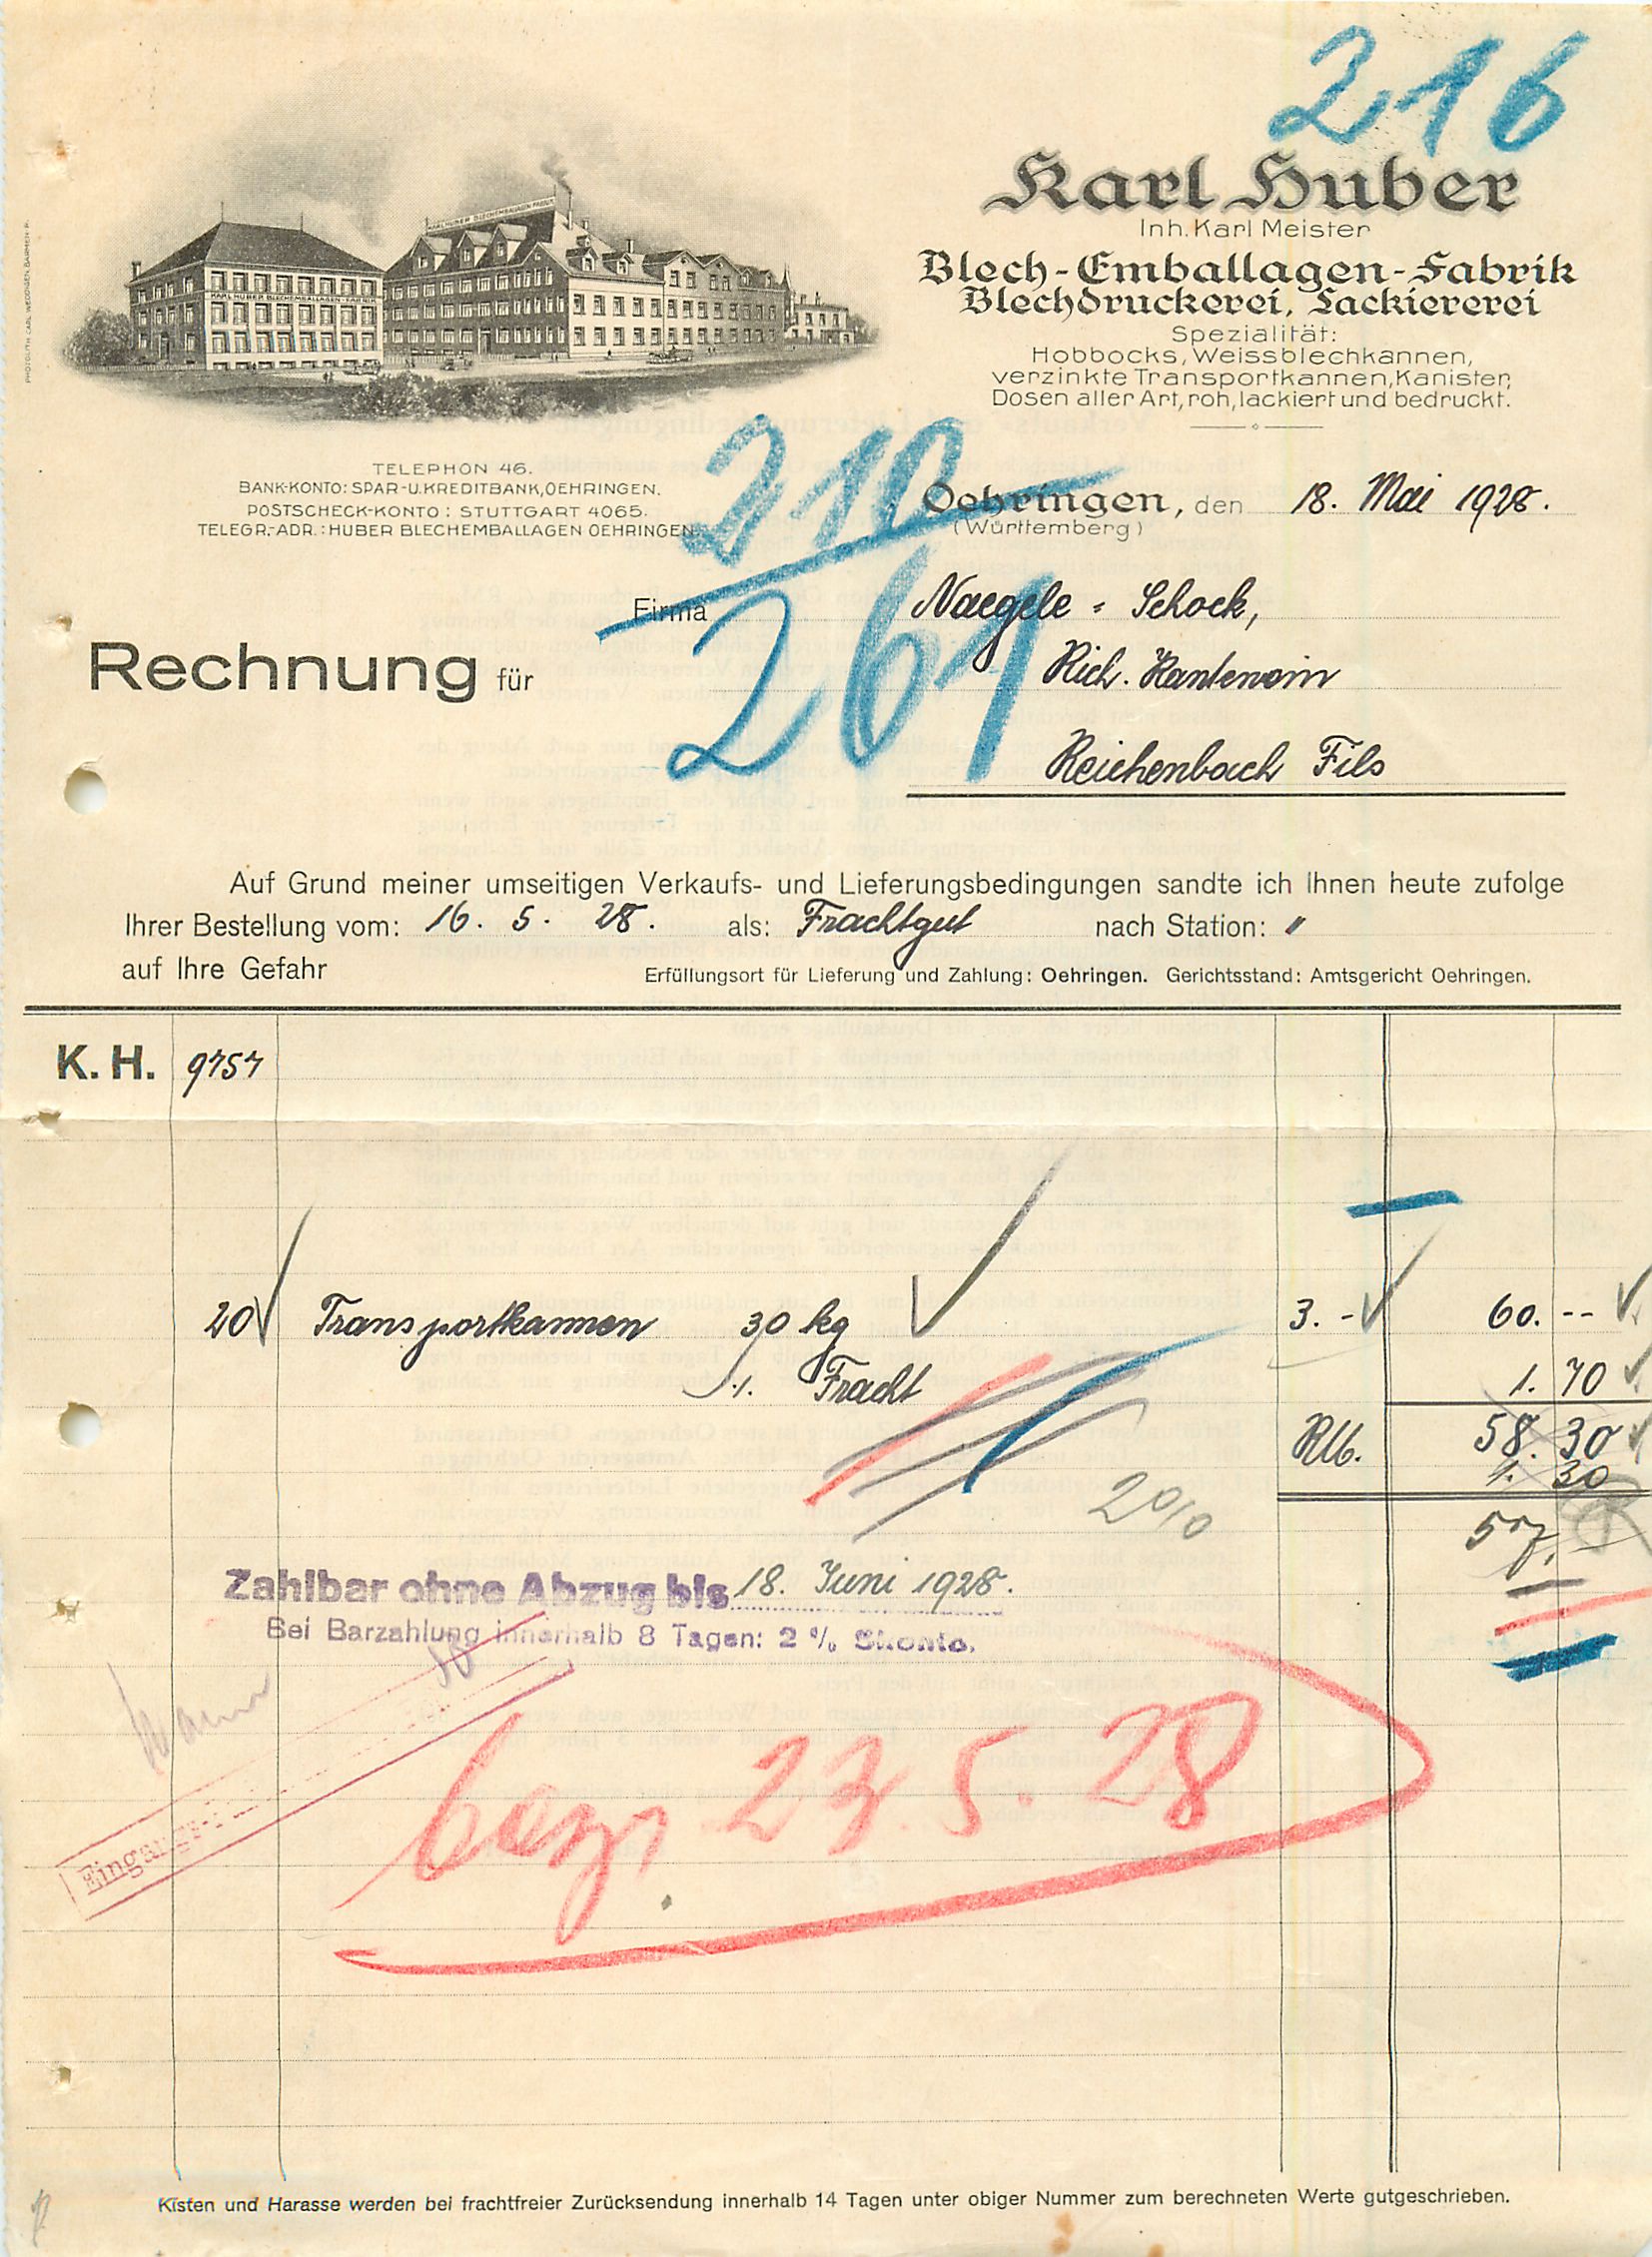 216
Karl Huber
Inh. Karl Meister
Blech-Emballagen-Fabrik
Blechdruckerei, Lackiererei
Spezialität:
Hobbocks, Weissblechkannen,
verzinkte Transportkannen, Kanister,
Dosen aller Art, roh, lackiert und bedruckt.
KARL HUBER BLECHEMBALLAGEN FABRIK
KARL HUBER BLECHEMBALLAGEN-FABRIK
PHOTOLITH. CARL WEDDIGEN, BARMEN-R.
TELEPHON 46.
BANK-KONTO: SPAR-U. KREDITBANK, OEHRINGEN.
POSTSCHECK-KONTO: STUTTGART 4065.
TELEGR.-ADR.: HUBER BLECHEMBALLAGEN OEHRINGEN.
210
Oehringen, den 18. Mai 1928.
(Württemberg)
261
Firma Naegele - Schock,
Rechnung für
Rich. Hantenoin
Reichenbach Fils
Auf Grund meiner umseitigen Verkaufs- und Lieferungsbedingungen sandte ich Ihnen heute zufolge
Ihrer Bestellung vom: 16. 5. 28. als: Frachtgut nach Station: "
auf Ihre Gefahr Erfüllungsort für Lieferung und Zahlung: Oehringen. Gerichtsstand: Amtsgericht Oehringen.
K. H. 9757
20 Transportkannen 30 kg 3.- 60. --
./. Fracht 1. 70
RM. 58. 30
1. 30
2% 57.-
Zahlbar ohne Abzug bis 18. Juni 1928.
Bei Barzahlung innerhalb 8 Tagen: 2 % Skonto.
bez. 23. 5. 28
Kisten und Harasse werden bei frachtfreier Zurücksendung innerhalb 14 Tagen unter obiger Nummer zum berechneten Werte gutgeschrieben.